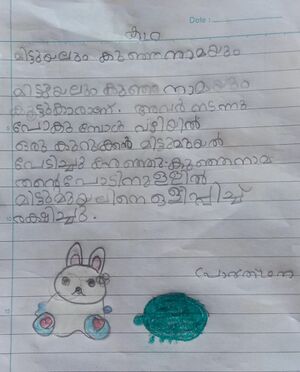 Date :
കഥ
മിട്ടുമുയലും കുഞ്ഞനാമയും
മിട്ടുമുയലും കുഞ്ഞനാമയും
കൂട്ടുകാരാണ്. അവർ നടന്നു
പോകുമ്പോൾ വഴിയിൽ
ഒരു കുറുക്കൻ മിട്ടുമുയൽ
പേടിച്ചു കുഞ്ഞനാമ
തന്റെ തോടിനുള്ളിൽ
മിട്ടുമുയലിനെ ഒളിപ്പിച്ച്
രക്ഷിച്ചു.